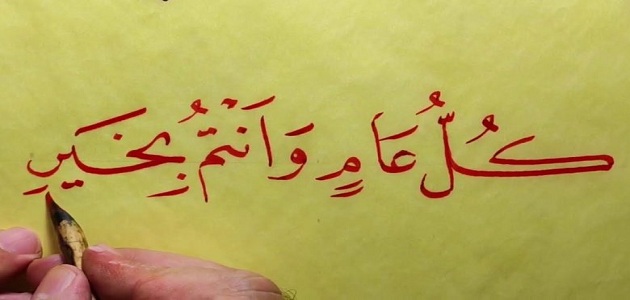 كُلُّ عَامٍ وَانْتُمْ بِخَيْرٍ